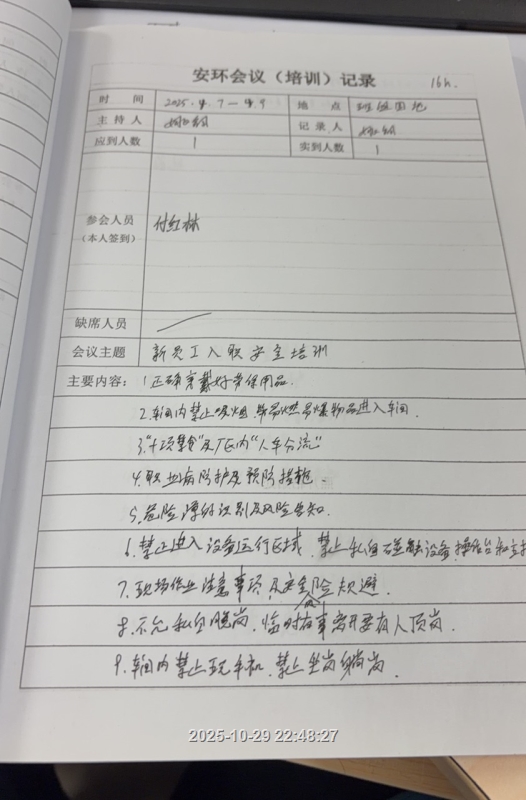 安环会议（培训）记录 16h.
时 间 2025.4.7—4.9 地 点 班组园地
主 持 人 记 录 人
应到人数 1 实到人数 1
参会人员
（本人签到） 付红林
缺席人员
会议主题 新员工入职安全培训
主要内容： 1.正确穿戴好劳保用品.
2.车间内禁止吸烟,带易燃易爆物品进入车间.
3."十项禁令"及厂区内"人车分流"
4.职业病防护及预防措施.
5.危险源的识别及风险告知.
6.禁止进入设备运行区域,禁止私自碰触设备,操作台和
7.现场作业注意事项,及安全风险规避.
8.不允私自脱岗,临时有事离开要有人顶岗.
9.车间内禁止玩手机,禁止坐岗躺岗.
2025-10-29 22:48:27